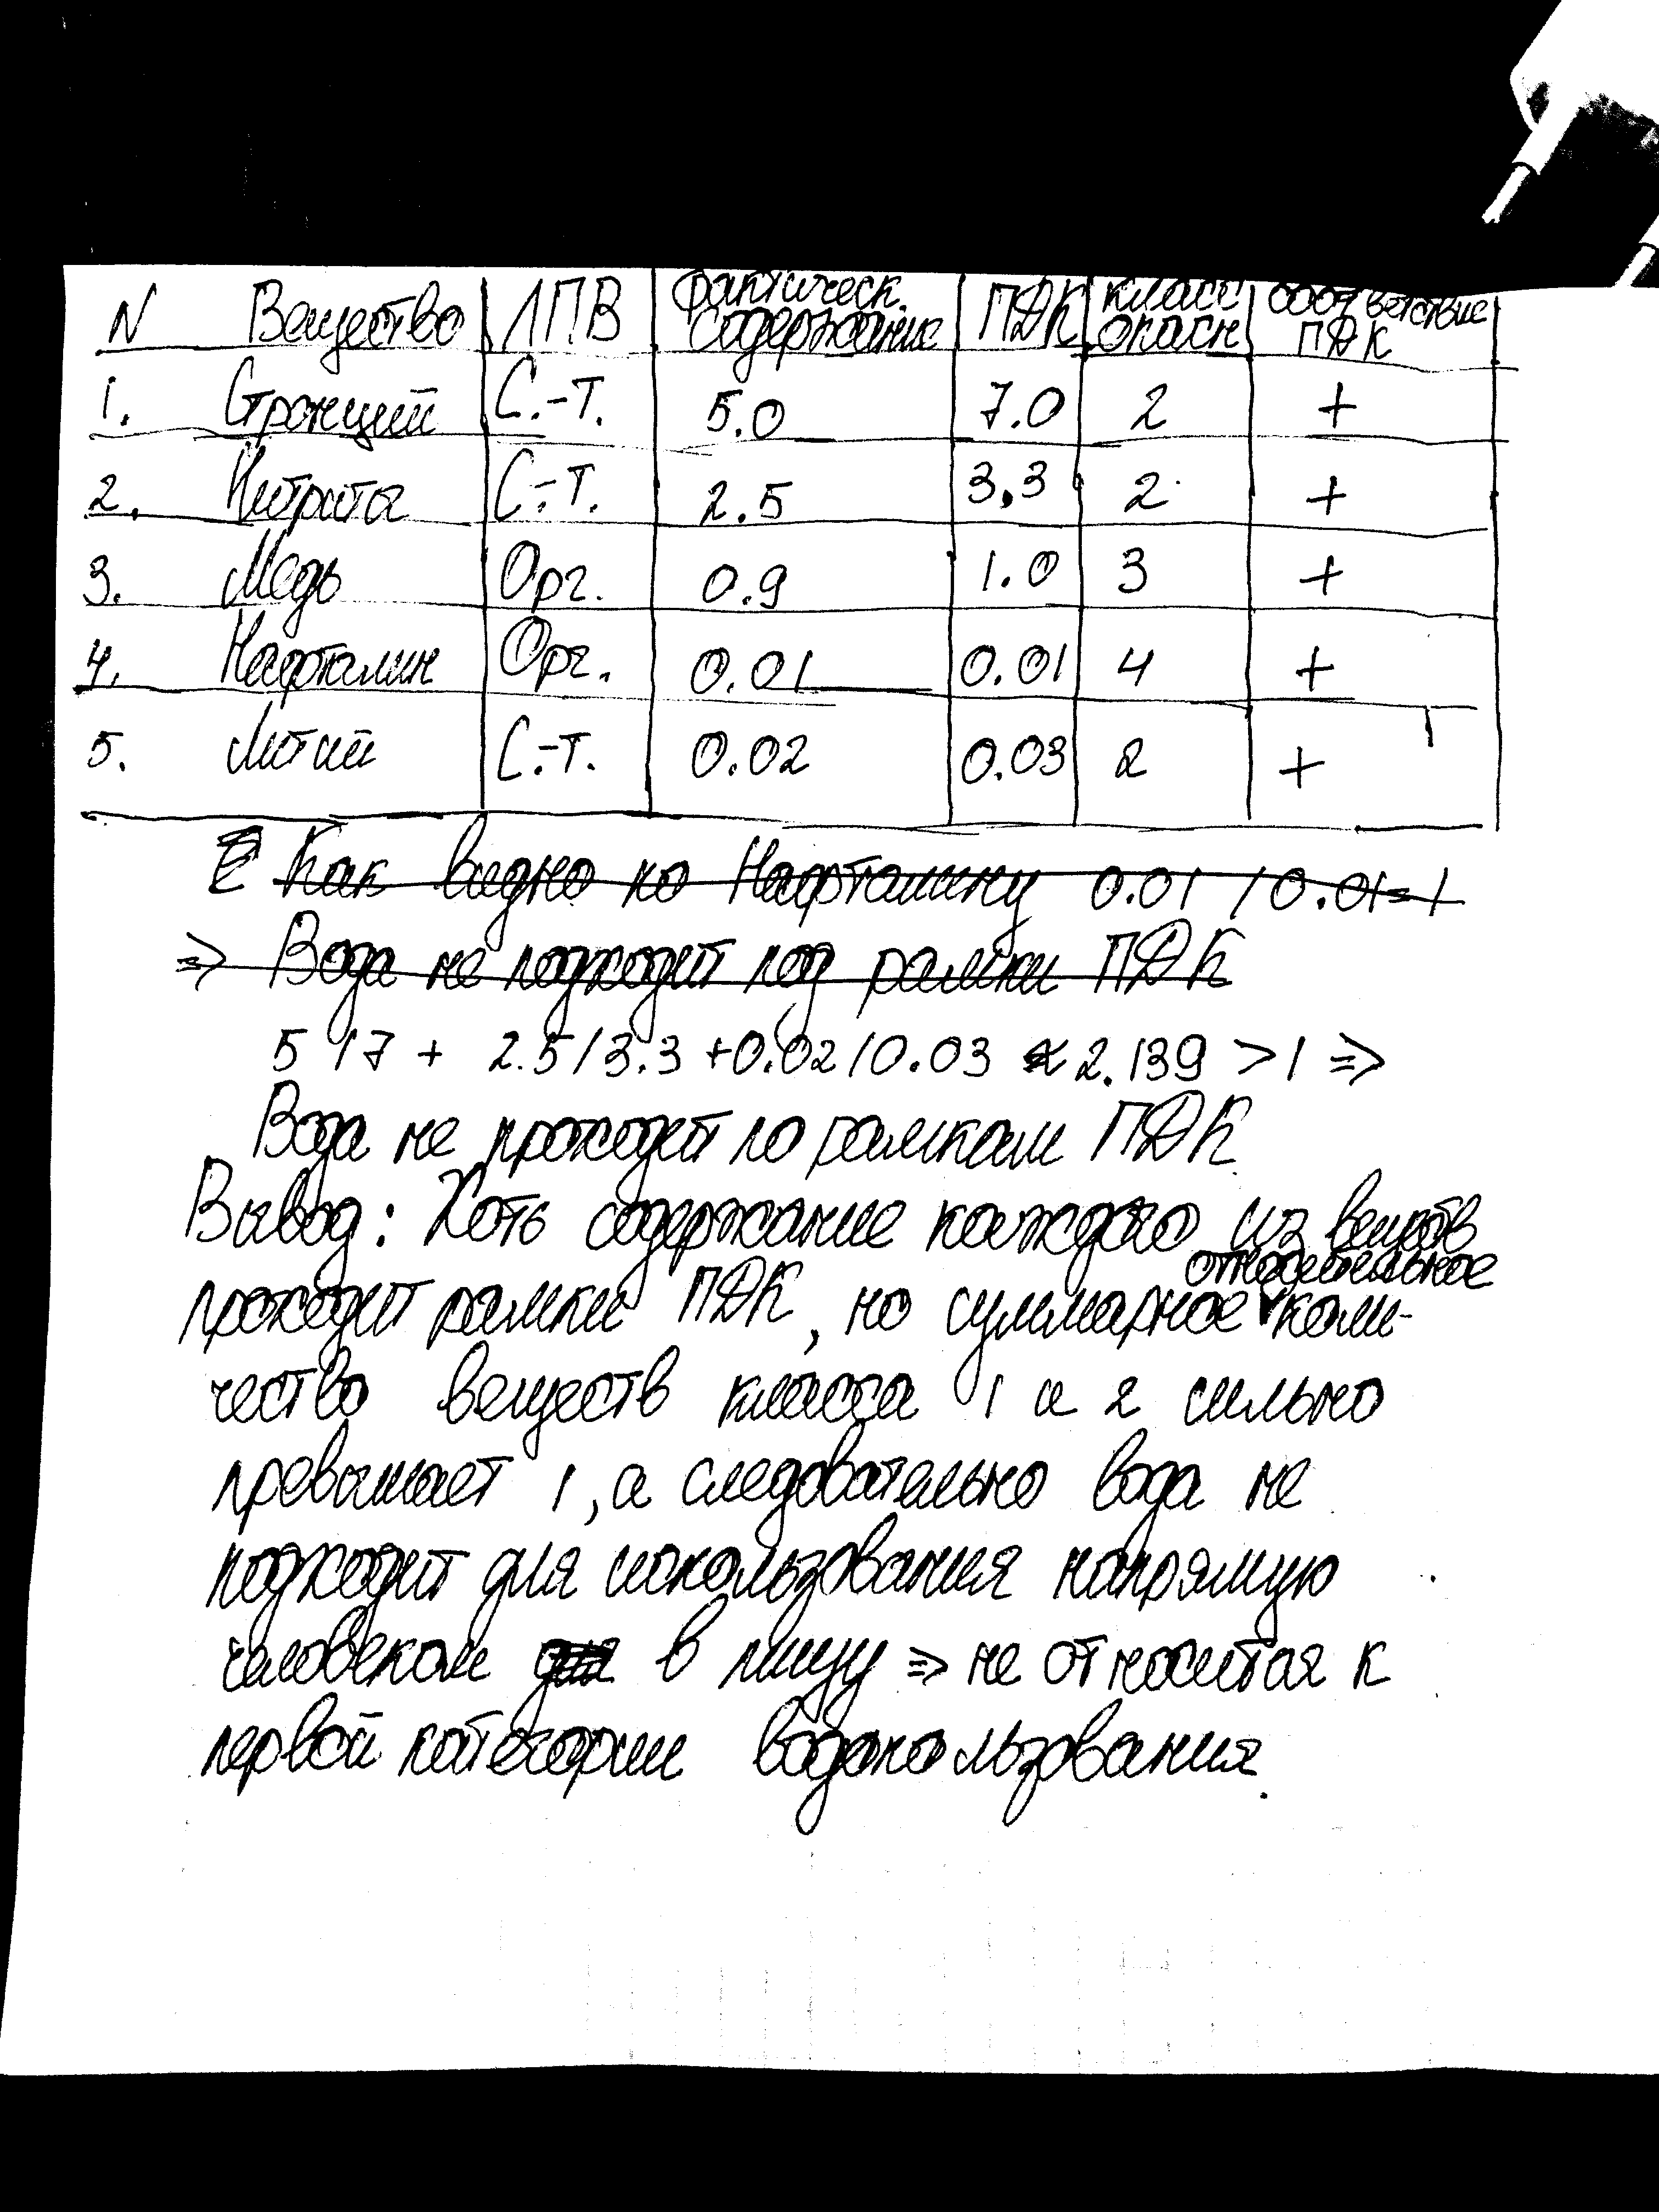 N Вещество ЛПВ фактическ. содержание ПДК класс опасн соответствие ПДК
1. Стронций С.-Т. 5.0 7.0 2 +
2. Нитриты С.-Т. 2.5 3,3 2 +
3. Медь Орг. 0.9 1.0 3 +
4. Нафталин Орг. 0.01 0.01 4 +
5. Литий С.-Т. 0.02 0.03 2 +
Как видно по Нафталину 0.01 / 0.01=1
=> Вода не подходит под рамки ПДК
5 / 7 + 2.5 / 3.3 + 0.02 / 0.03 ≈ 2.139 > 1 =>
Вода не проходит по рамкам ПДК
Вывод: Хоть содержание каждого из веществ
относительное
проходит рамки ПДК, но суммарное коли-
чество веществ класса 1 и 2 сильно
превышает 1, а следовательно вода не
подходит для использования напрямую
человеком в пищу => не относится к
первой категории водопользования.